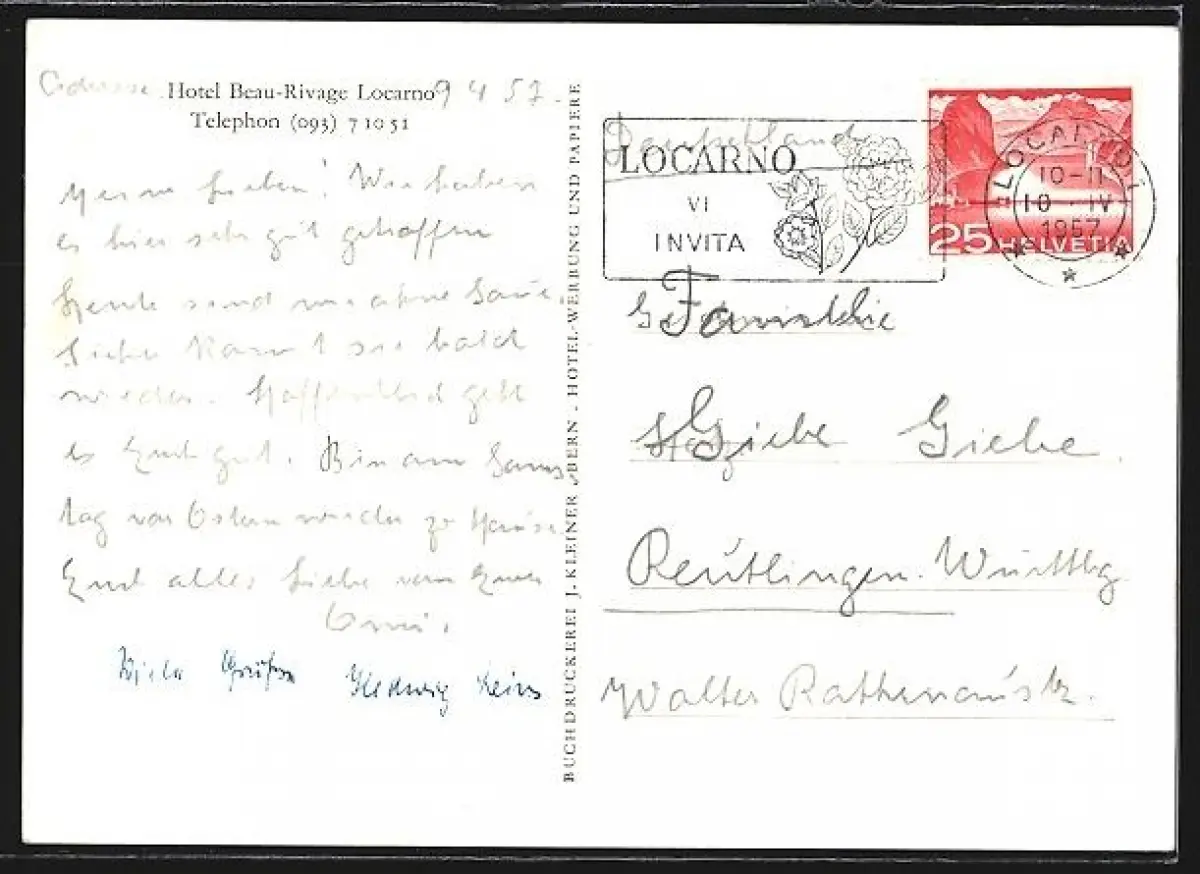 Hotel Beau-Rivage Locarno 9 4 57.
Telephon (093) 7 10 51
Meine Lieben! Wir haben
es hier sehr gut getroffen
Heute sind wir ohne
wieder. Hoffentlich geht
es Euch gut. Bin am Sams
tag vor Ostern wieder zu Hause
Euch alles Liebe von Eurer
Omi.
Viele Grüße Hedwig
BUCHDRUCKEREI J. KLEINER, BERN - HOTEL-WERBUNG UND PAPIERE
Deutschland
LOCARNO
VI
INVITA
LOCARNO 1
10-11
10·IV
1957
25 HELVETIA
Familie
Giebe Giebe
Reutlingen. Württbg
Walter Rathenaustr.